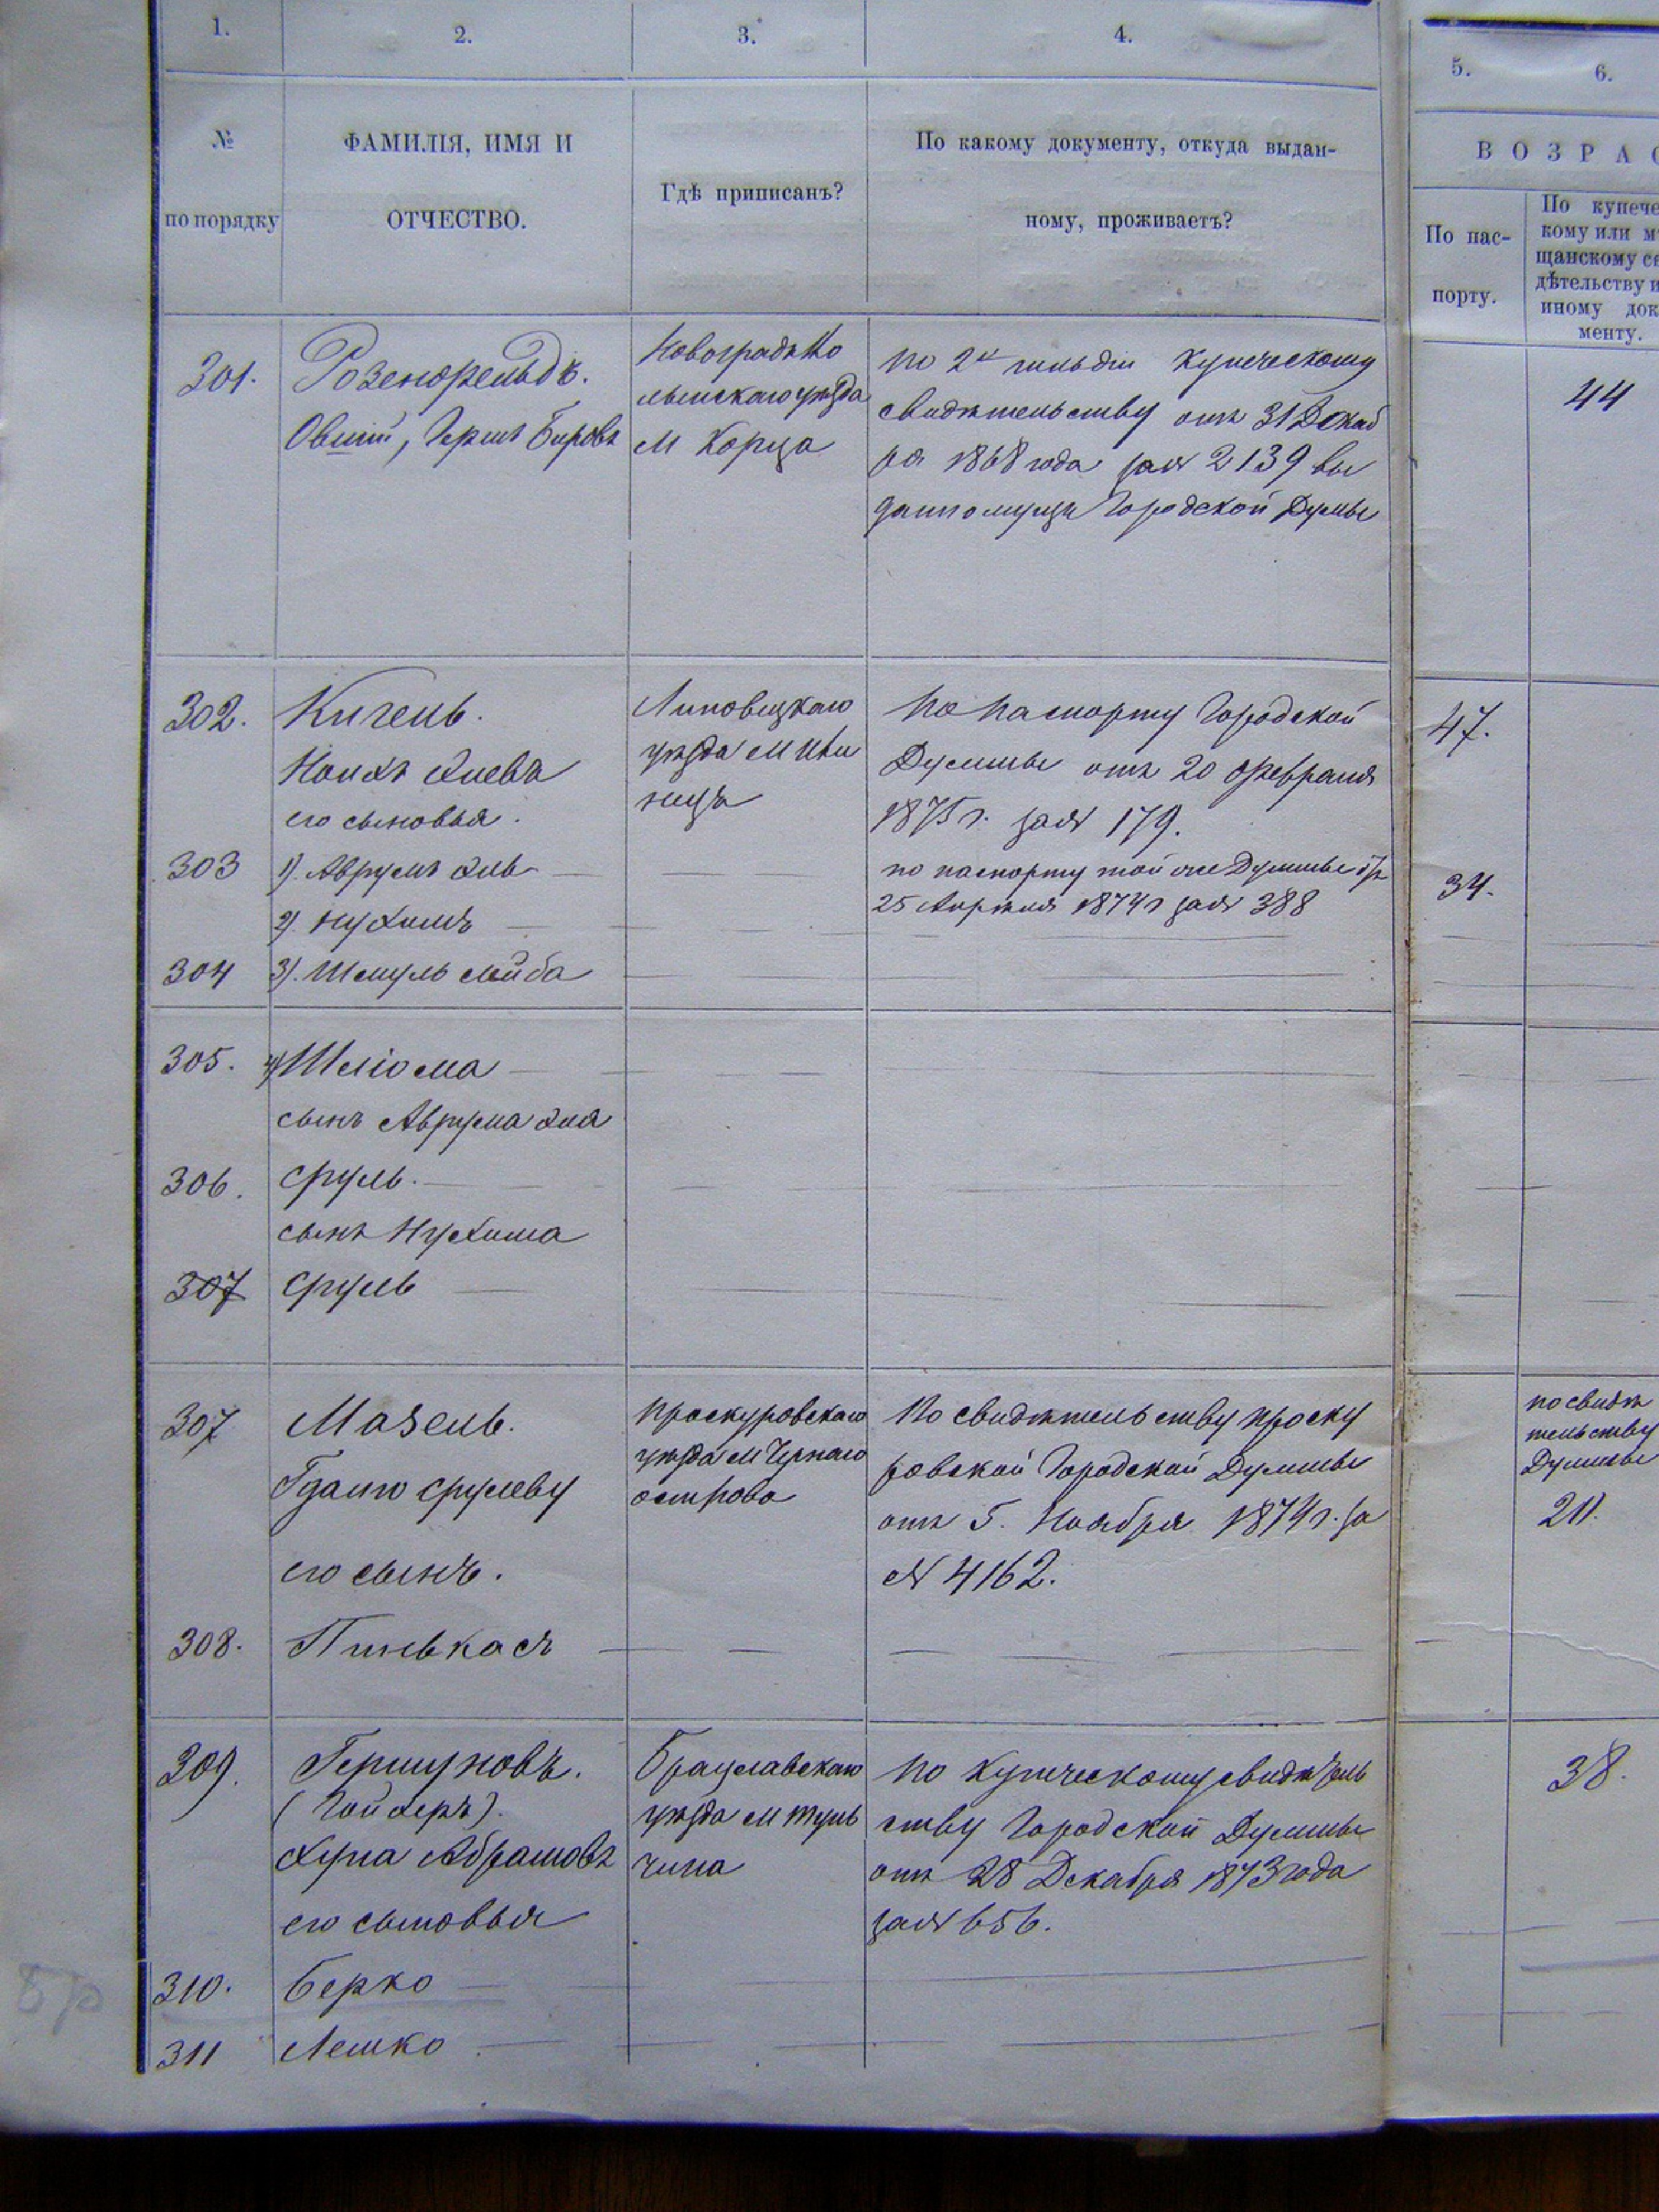 1.
2.
3.
4.
5.
6.
№
по порядку
ФАМИЛІЯ, ИМЯ И
ОТЧЕСТВО.
Гдѣ приписанъ?
По какому документу, откуда выдан-
ному, проживаетъ?
ВОЗРАС
По пас-
порту.
По купече
кому или мѣ
щанскому св
дѣтельству и
иному док
менту.
301.
Розенфельдъ.
Овшій, Гершъ Беровъ
Новоградъ Во
лынскаго уѣзда
М Корца
по 2й гильдіи Купеческому
свидѣтельству отъ 31 Декаб
ря 1868 года за № 2139 вы
данному изъ Городской Думы
44
302.
Кигель.
Ноихъ
его сыновья.
Липовецкаго
уѣзда М Иль
нецъ
По паспорту Городской
Думы отъ 20 февраля
1875 г. за № 179.
47.
303
1). Аврумъ Эль
по паспорту той же Думы отъ
25 Апрѣля 1874 г за № 388
34.
2). Нухимъ
304
3). Шмуль Лейба
305.
4) Шлiома
сынъ Аврума Эля
306.
Сруль.
сынъ Нухима
307
Сруль
307
Мазель.
Срулевъ
его сынъ.
Проскуровскаго
уѣзда М Чернаго
острова
По свидѣтельству Проску
ровской Городской Думы
отъ 5. Ноября 1874 г. за
№ 4162.
по свидѣ
тельству
Думы
21.
308.
Пинькасъ
309.
Гершуновъ.
(Гойхеръ).
Абрамовъ
его сыновья
Брацлавскаго
уѣзда М Туль
чина
по Купеческому свидѣтель
ству Городской Думы
отъ 28 Декабря 1873 года
за № 656.
38.
310.
Берко
311
Лешко
Бр